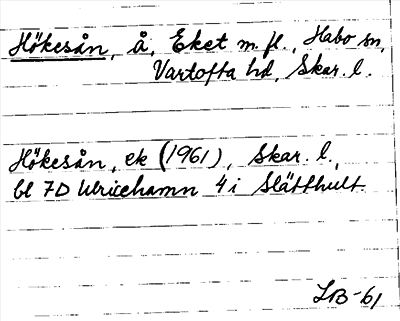 Hökesån, å, Eket m.fl., Habo sn,
Vartofta hd, Skar. l.
Hökesån, ek (1961), Skar. l.,
bl 7D Ulricehamn 4i Slätthult.
LB-61